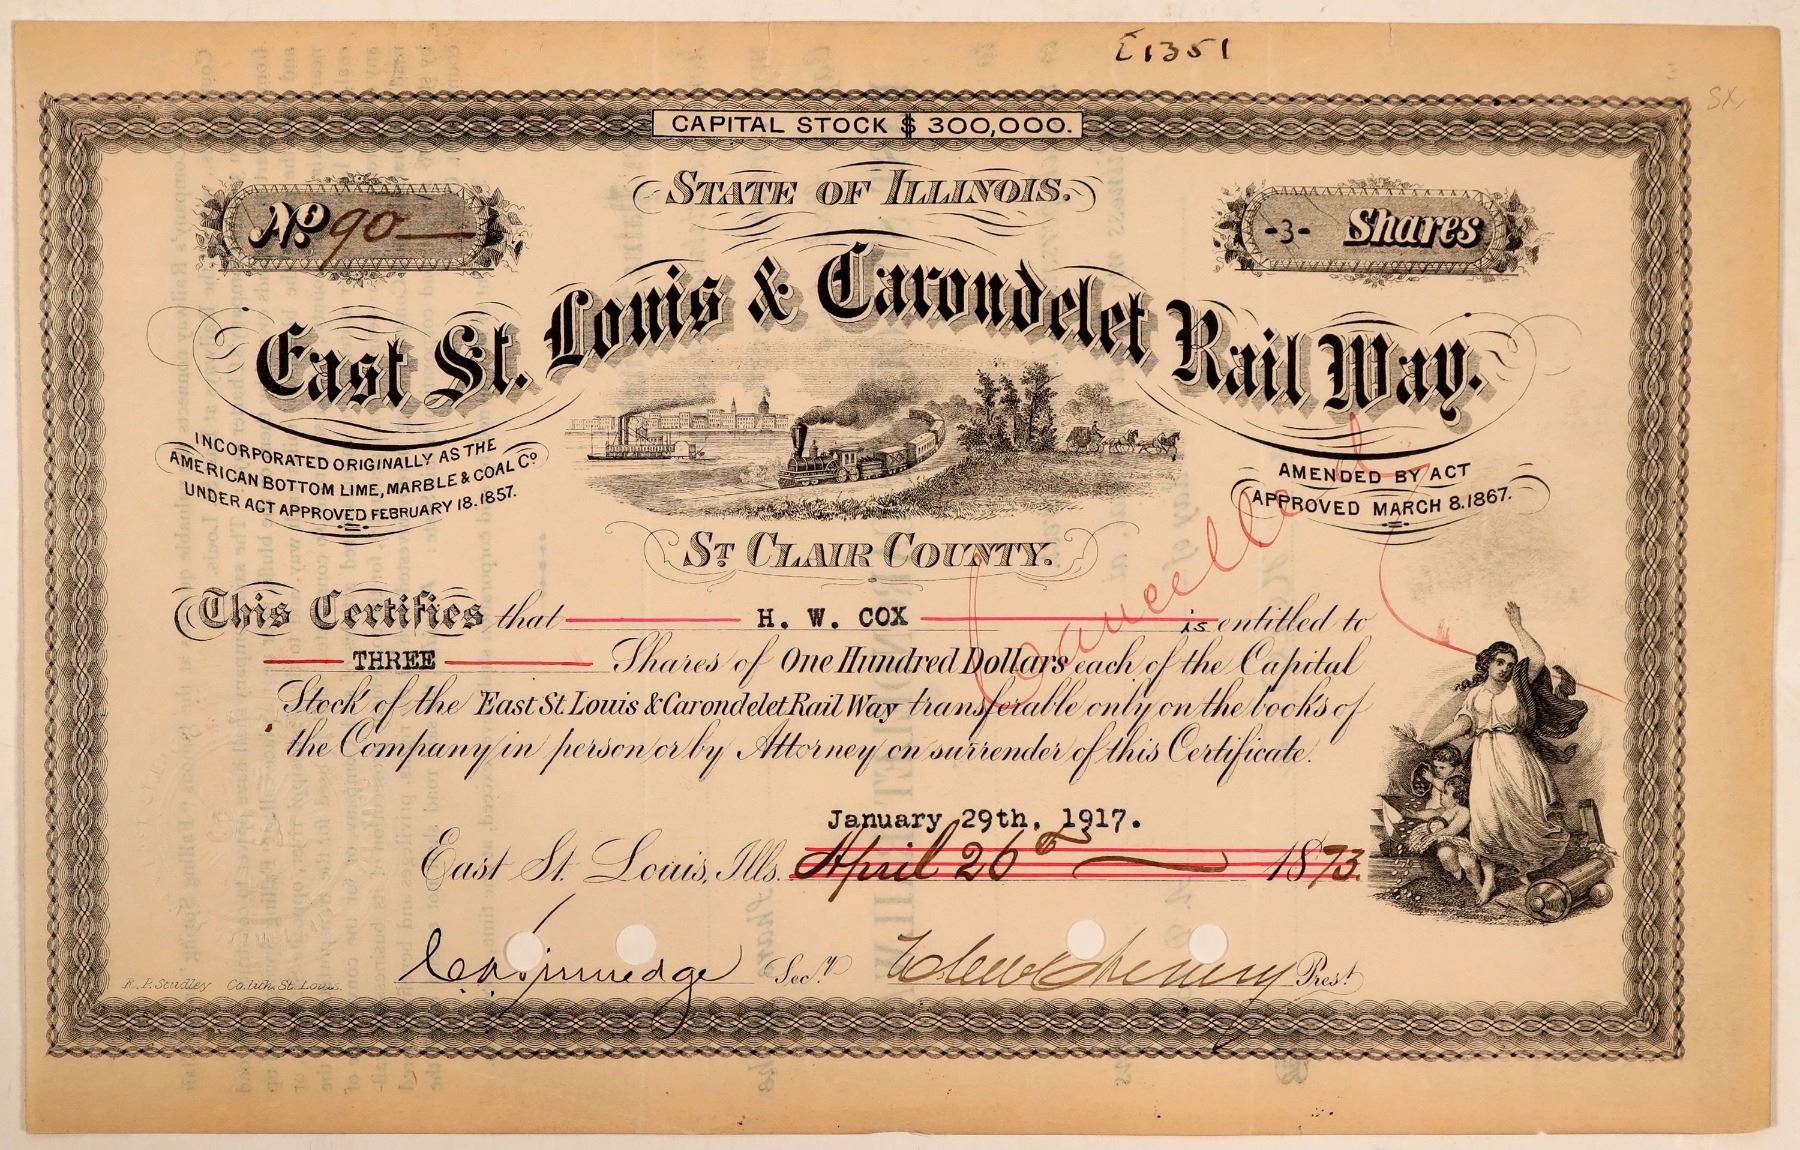 E1351
SX
CAPITAL STOCK $ 300,000.
STATE OF ILLINOIS.
No 90
-3- Shares
East St. Louis & Carondelet Rail Way.
INCORPORATED ORIGINALLY AS THE
AMERICAN BOTTOM LIME, MARBLE & COAL Co
UNDER ACT APPROVED FEBRUARY 18. 1857.
AMENDED BY ACT
APPROVED MARCH 8. 1867.
ST CLAIR COUNTY.
Cancelled
This Certifies that H. W. COX is entitled to
THREE Shares of One Hundred Dollars each of the Capital
Stock of the East St. Louis & Carondelet Rail Way transferable only on the books of
the Company in person or by Attorney on surrender of this Certificate.
January 29th, 1917.
East St. Louis, Ills. April 26th 1873.
Secy
Prest
R. P. Studley Co. lith. St. Louis.